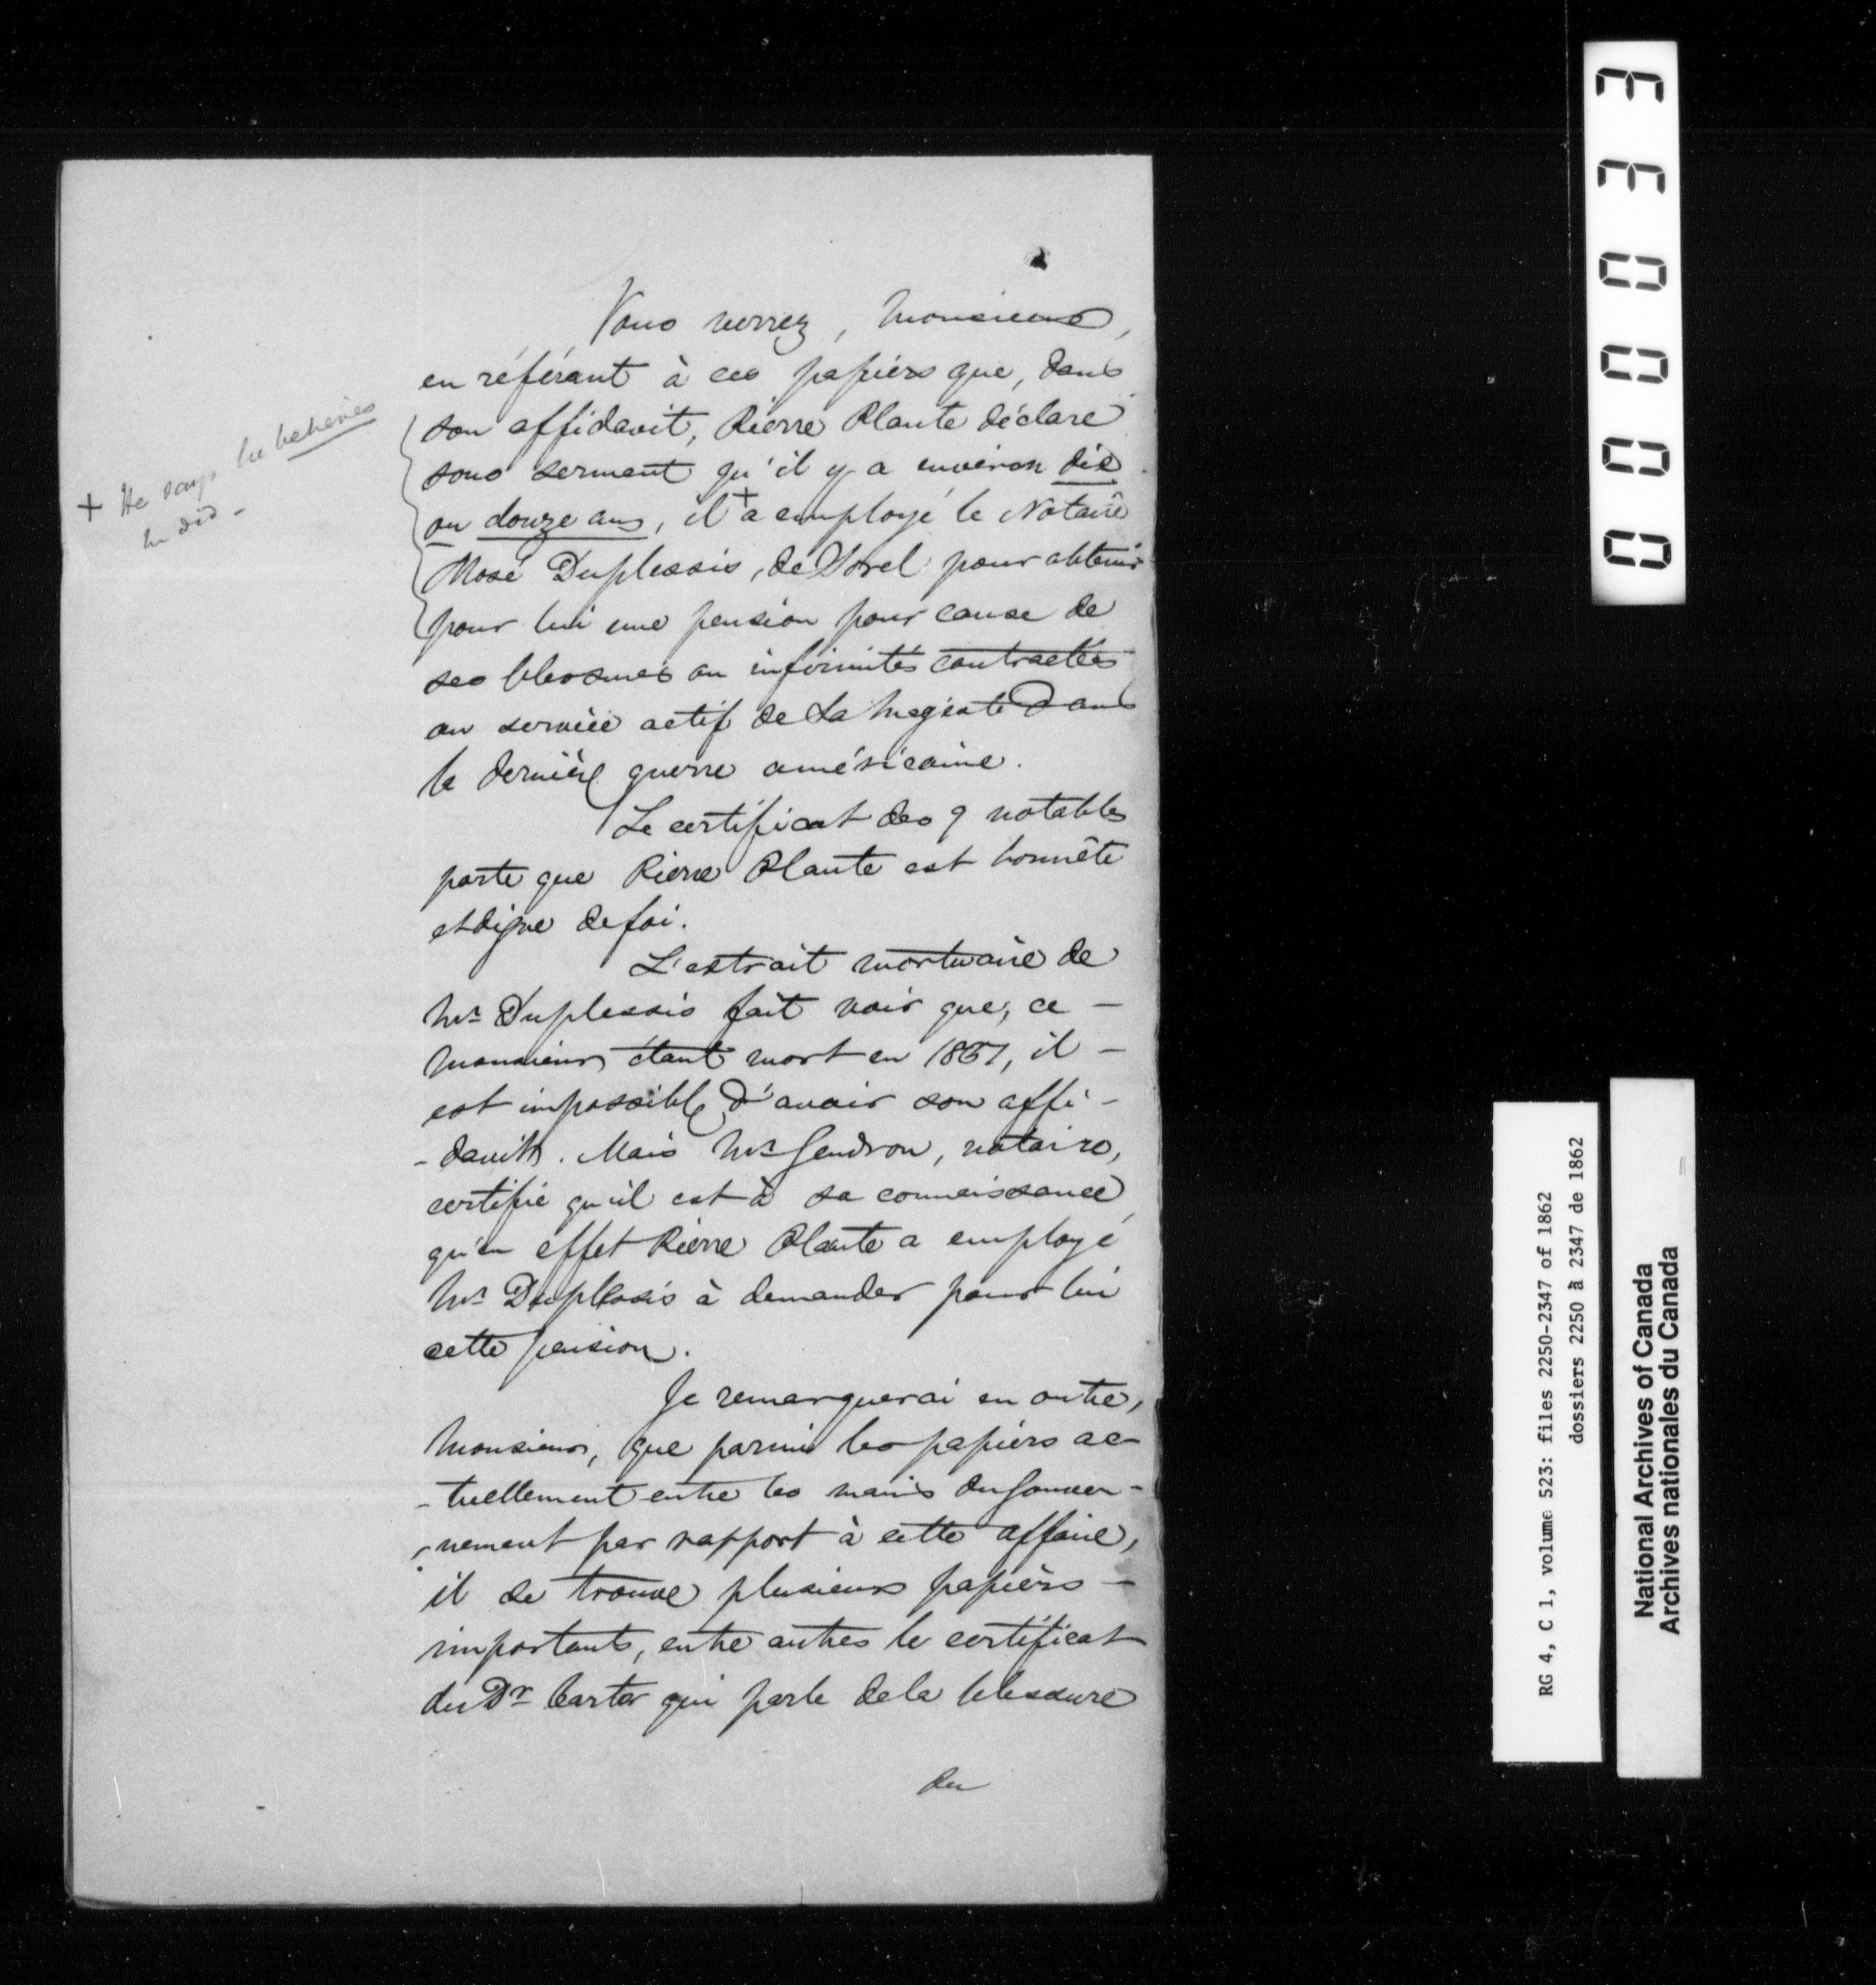 Vous verrez, Monsieur,
en référant à ces papiers que, dans
son affidavit, Pierre Plante déclare
sous serment qu'il y a environ dix
ou douze ans, il + a employé le Notaire
Mosé Duplessis, de Sorel pour obtenir
pour lui une pension pour cause de
ses blessures ou infirmités contractées
au service actif de Sa Majesté dans
la dernière guerre américaine.
+ He says he believes
he did -
Le certificat des 9 notables
porte que Pierre Plante est honnête
et digne de foi.
L'extrait mortuaire de
Mr Duplessis fait voir que, ce -
monsieur étant mort en 1857, il -
est impossible d'avoir son affi-
-davit. Mais Mr Gendron, notaire,
certifie qu'il est à sa connaissance
qu'en effet Pierre Plante a employé
Mr Duplessis à demander pour lui
cette pension.
Je remarquerai en outre,
Monsieur, que parmi les papiers ac-
-tuellement entre les mains du Gouver-
-nement par rapport à cette affaire,
il se trouve plusieurs papiers -
importants, entre autres le certificat
du Dr Carter qui parle de la blessure
du
000033
RG 4, C 1, volume 523: files 2250-2347 of 1862
dossiers 2250 à 2347 de 1862
National Archives of Canada
Archives nationales du Canada